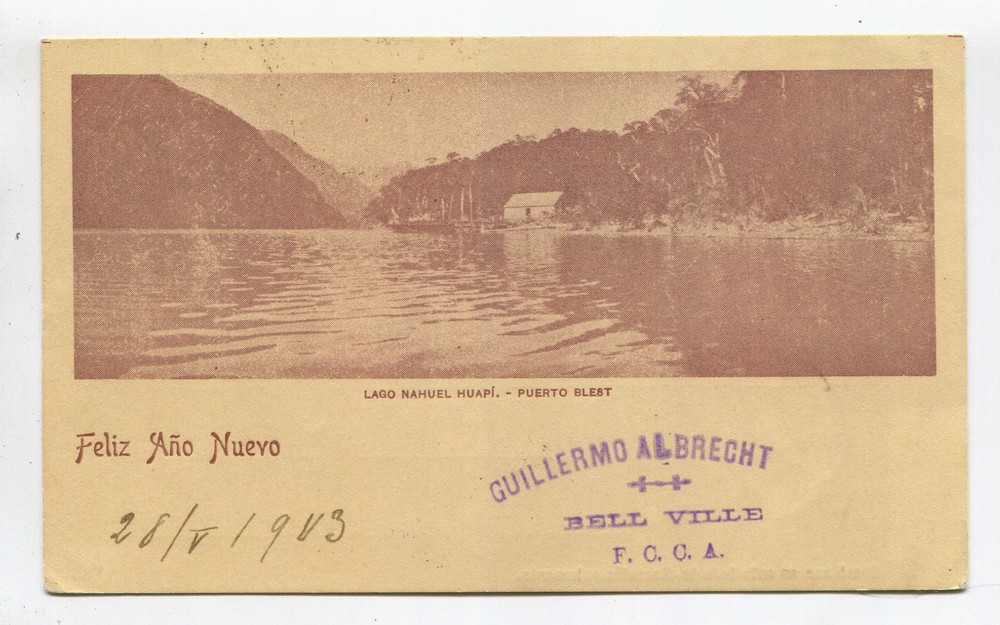 LAGO NAHUEL HUAPÍ. - PUERTO BLEST
Feliz Año Nuevo
GUILLERMO ALBRECHT
BELL VILLE
F. C. C. A.
28/V 1903